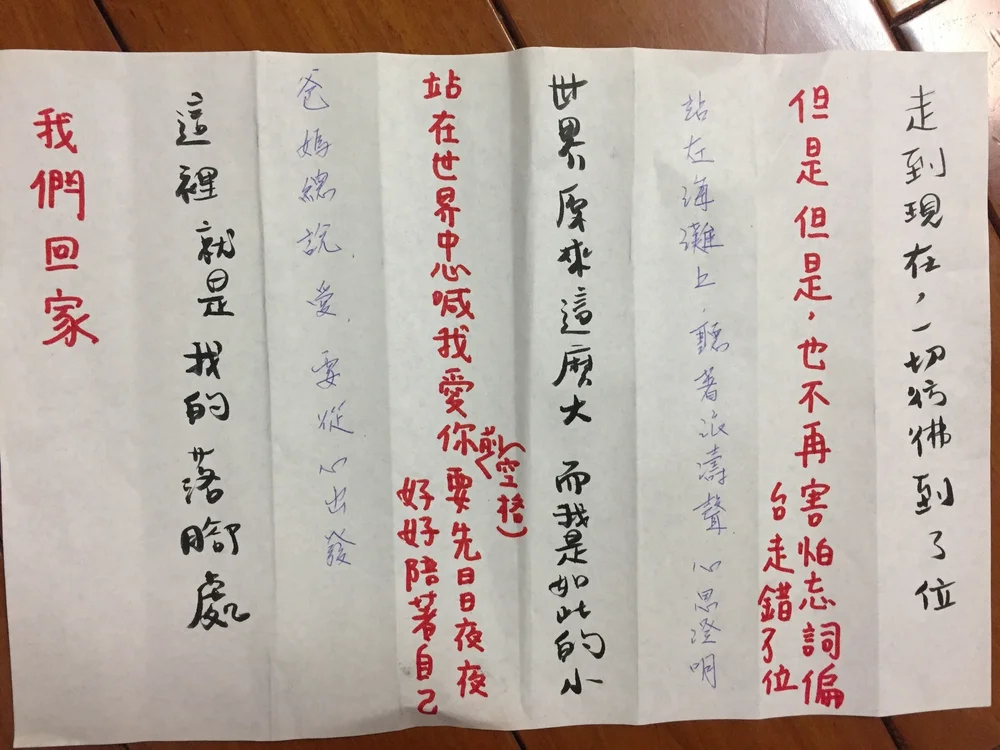 走到現在，一切彷彿到了位
但是但是，也不再害怕忘詞偏
台走錯了位
站在海灘上，聽著浪濤聲 心思澄明
世界原來這麼大 而我是如此的小
站在世界中心喊我愛你 要先日日夜夜
(前空格)
好好陪著自己
爸媽總說，愛，要從心出發
這裡就是我的落腳處
我們回家